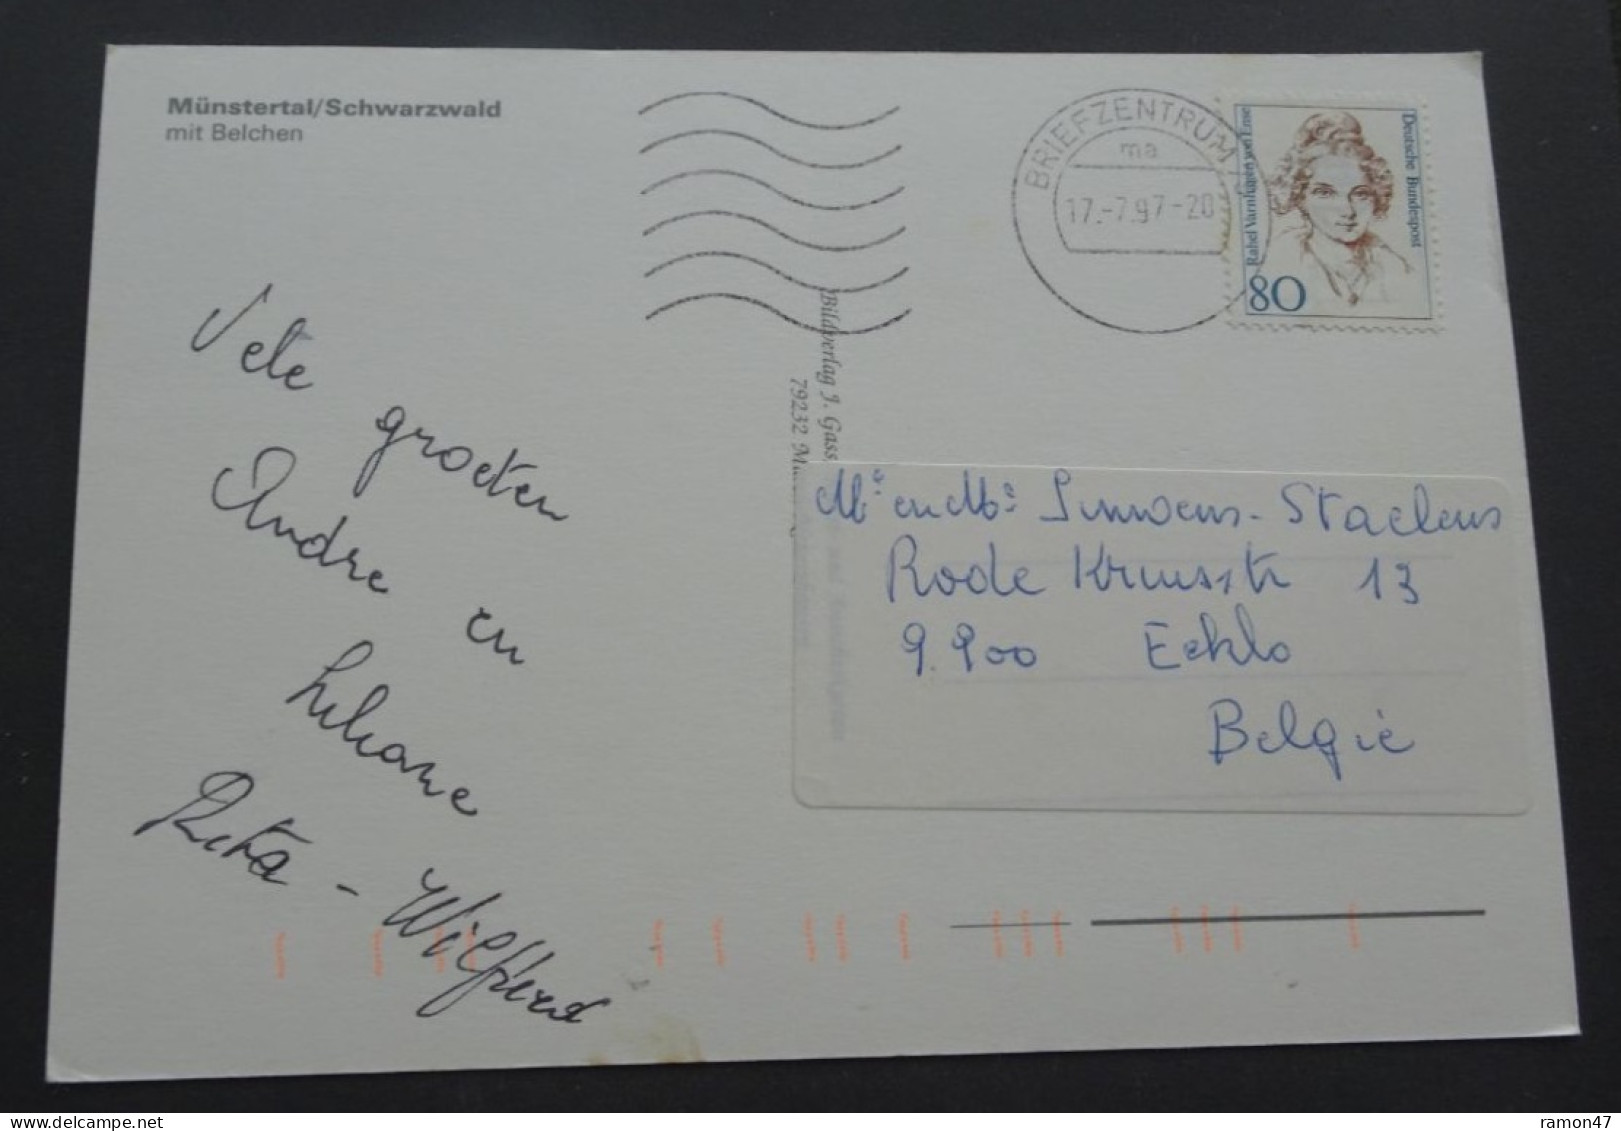 Münstertal/Schwarzwald
mit Belchen
BRIEFZENTRUM
ma
17.-7.97-20
Deutsche Bundespost
Rahel Varnhagen von Ense
80
Vele
groeten
Andre en
Liliane
Rita - Wilfried
Bildverlag J. Gass
79232
Mr en Ms Staelens
Rode Kruisstr 13
9.900 Eeklo
België
ramon47